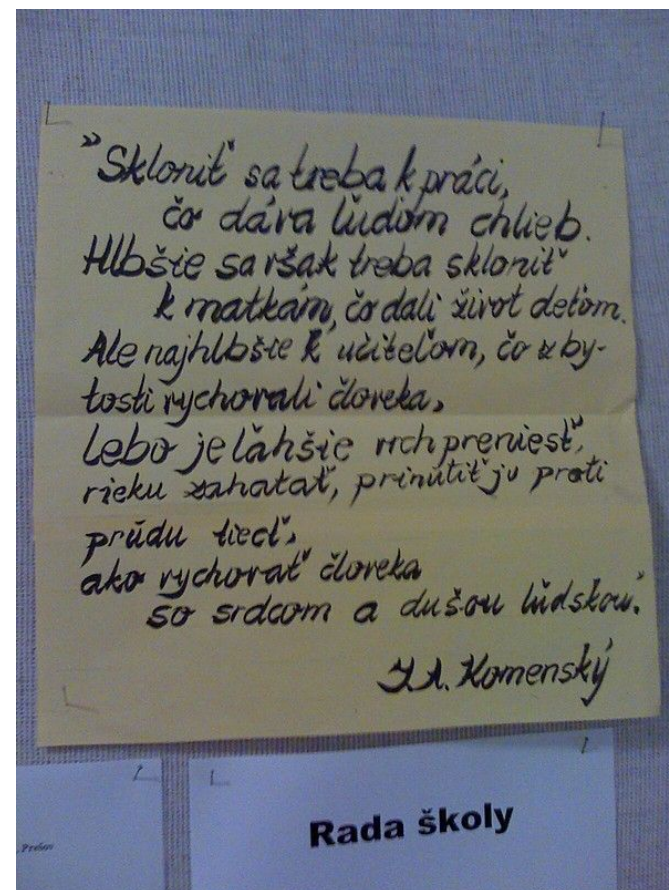 "Skloniť sa treba k práci,
čo dáva ľuďom chlieb.
Hlbšie sa však treba skloniť
k matkám, čo dali život deťom.
Ale najhlbšie k učiteľom, čo z by-
tosti vychovali človeka,
lebo je ľahšie vrch preniesť,
rieku zahatať, prinútiť ju proti
prúdu tiecť,
ako vychovať človeka
so srdcom a dušou ľudskou."
J.A. Komenský
, Prešov
Rada školy